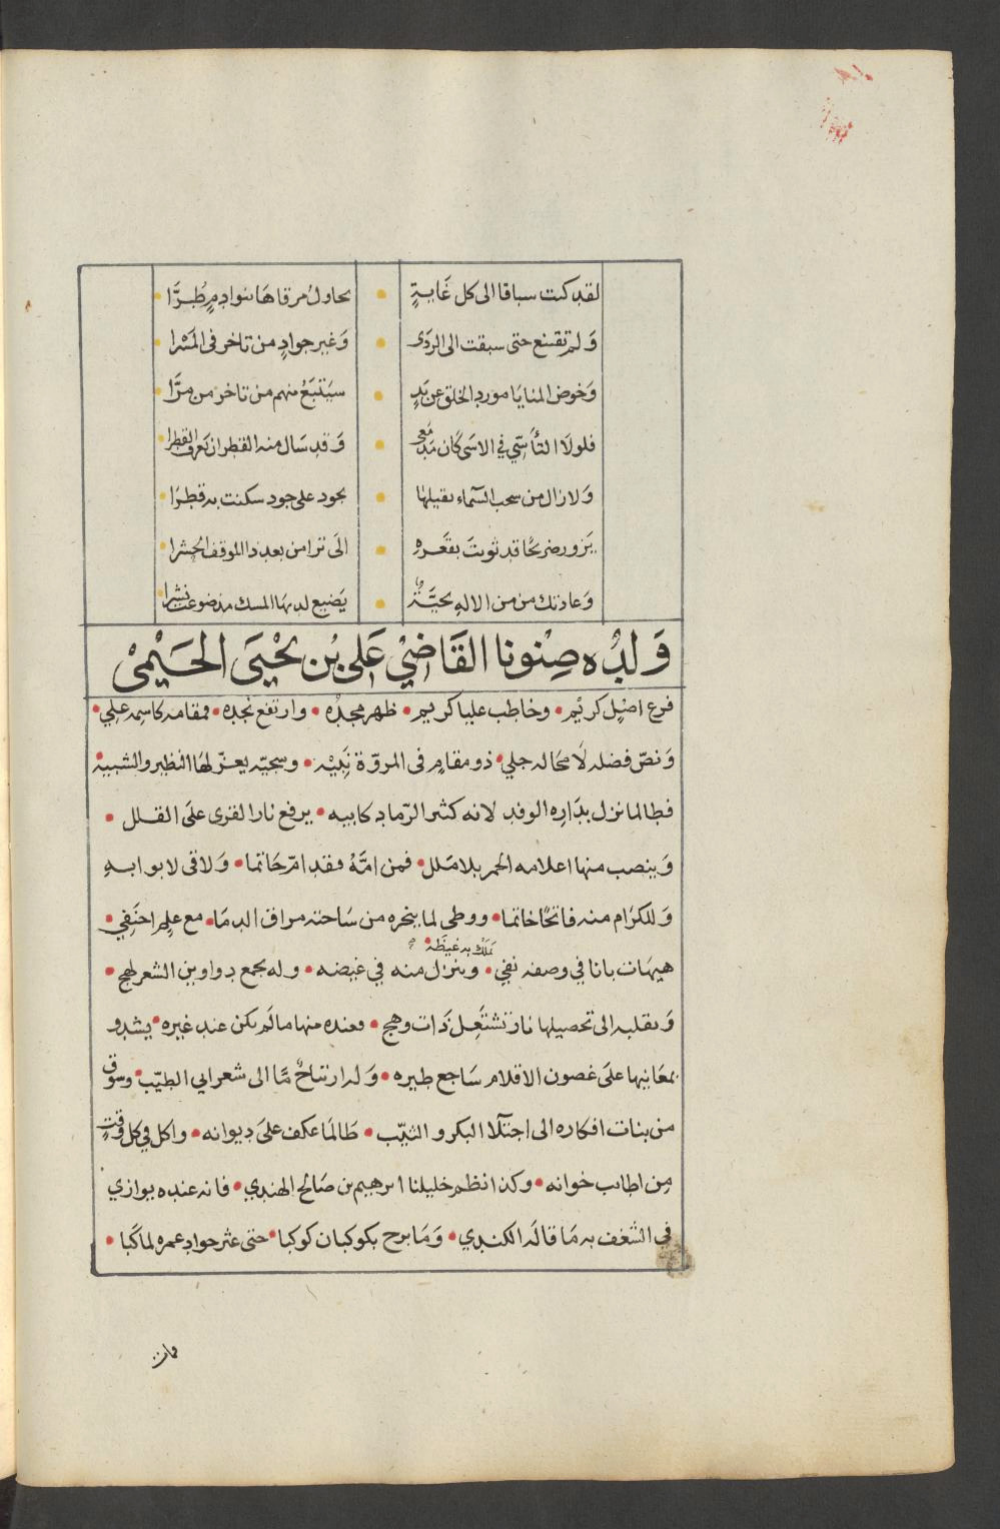 لقد كنت سباقا الى كل غَايةٍ • يحاول مرقاها سواد مٍ طُبرَّا
وَلم تقنع حتى سبقت الى الردَى • وَغير جوادٍ من تاخر فى المَسْرا
وَخوض المنايَا مورد الخلق عن يَدٍ • سيَتبَعُ منهم من تاخر من مرَّا
فلولَا التأسّي في الاسَى كَان مَدمعى • وَقد سَال منه القطر ان يَعرف القطرا
وَلا زال من سحب السّماء ثقيلها • يجود على جود سكنت به قطرَا
يَزور ضريحًا قد ثويتَ بقعَره • الى ترا من بعد ذا الموقف الحشرا
وَعادتك من من الاله تحيَّةٌ • يَضيع لديهَا المسك مذ ضوعت نشرا
وَلدُه صِنْونا القَاضيْ عَلى بْن يَحْيَى الحَيْمىْ
فرع اصْلٍ كريْم • وخاطب عليا كريم • ظهر مجدُه • وارتفع نجده • فمقامه كاسمه علي •
وَنصّ فضله لَا محَاله جلي • ذو مقامٍ فى المروّة نَبِيْه • وسجيّه يعزّ لهَا النظير والشبيهْ
فطالما نزل بدَارِه الوفد لانه كثير الرّماد كابيه • يرفع نار القرى علَى القلل •
وَينصب منها اعلامه الحمر بلا مَلل • فمن امَّهُ فقد امّ حَاتما • وَلاقى لابواَبهِ
وَللكرَام منه فاتحًا خاتما • ووطى لما ينحره من سَاحته مراق الدمَا • مع علمٍ احنَفي •
تملّك به غيظَهْ •
هيهَات بانا في وصفه نفي • وينزل منه في غيضه • وله بجمع دواوين الشعر لهج •
وَبقلبه الى تحصيلها نار تشتَعِل ذَات وهج • فعنده منها ما لَم يكن عند غيره • يشدو
بمعَانيها علَى غصون الاقلام سَاجع طيره • وَله ارتياحٌ مَّا الى شعر ابي الطيّب • وسوق
من بنات افكاره الى اجتلآ البكر و الثيّب • طَالمَا عكف علَى ديوانه • واكل في كل وقتٍ
مِن اطايب خوانه • وكذا نظم خليلنا ابرهيم بن صَالح الهندي • فانه عنده يوازي
في الشّغف به مَا قالَه الكندي • وَمَا برح بكوكبان كوكبا • حتى عثر جواد عمره لما كبا •
فمات